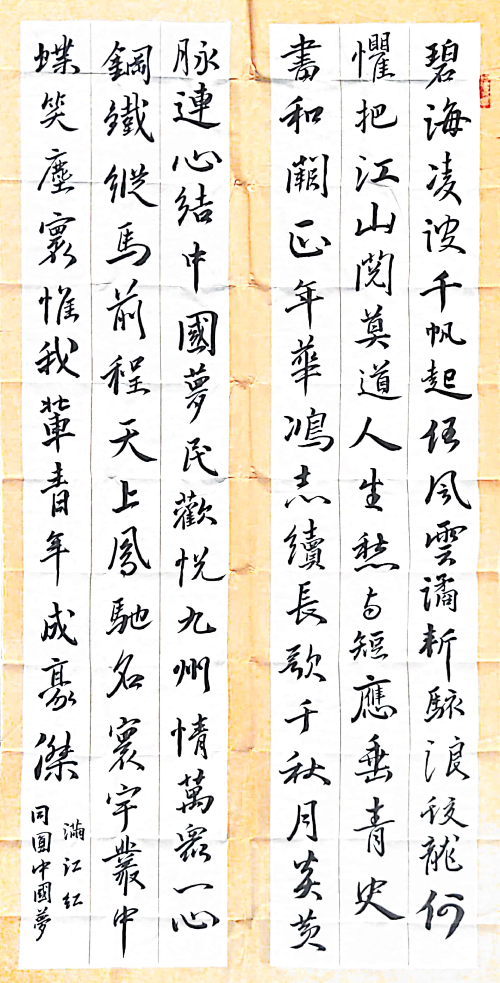 碧海凌波千帆起任风雲譎斬駭浪蛟龍何
懼把江山閲莫道人生愁与短應垂青史
書和闕正年華鴻志續長歌千秋月炎黄
脉連心結中國夢民歡悦九州情萬衆一心
鋼鐵縱馬前程天上鳳馳名寰宇叢中
蝶笑塵寰惟我輩青年成豪傑
滿江红
同圓中國夢